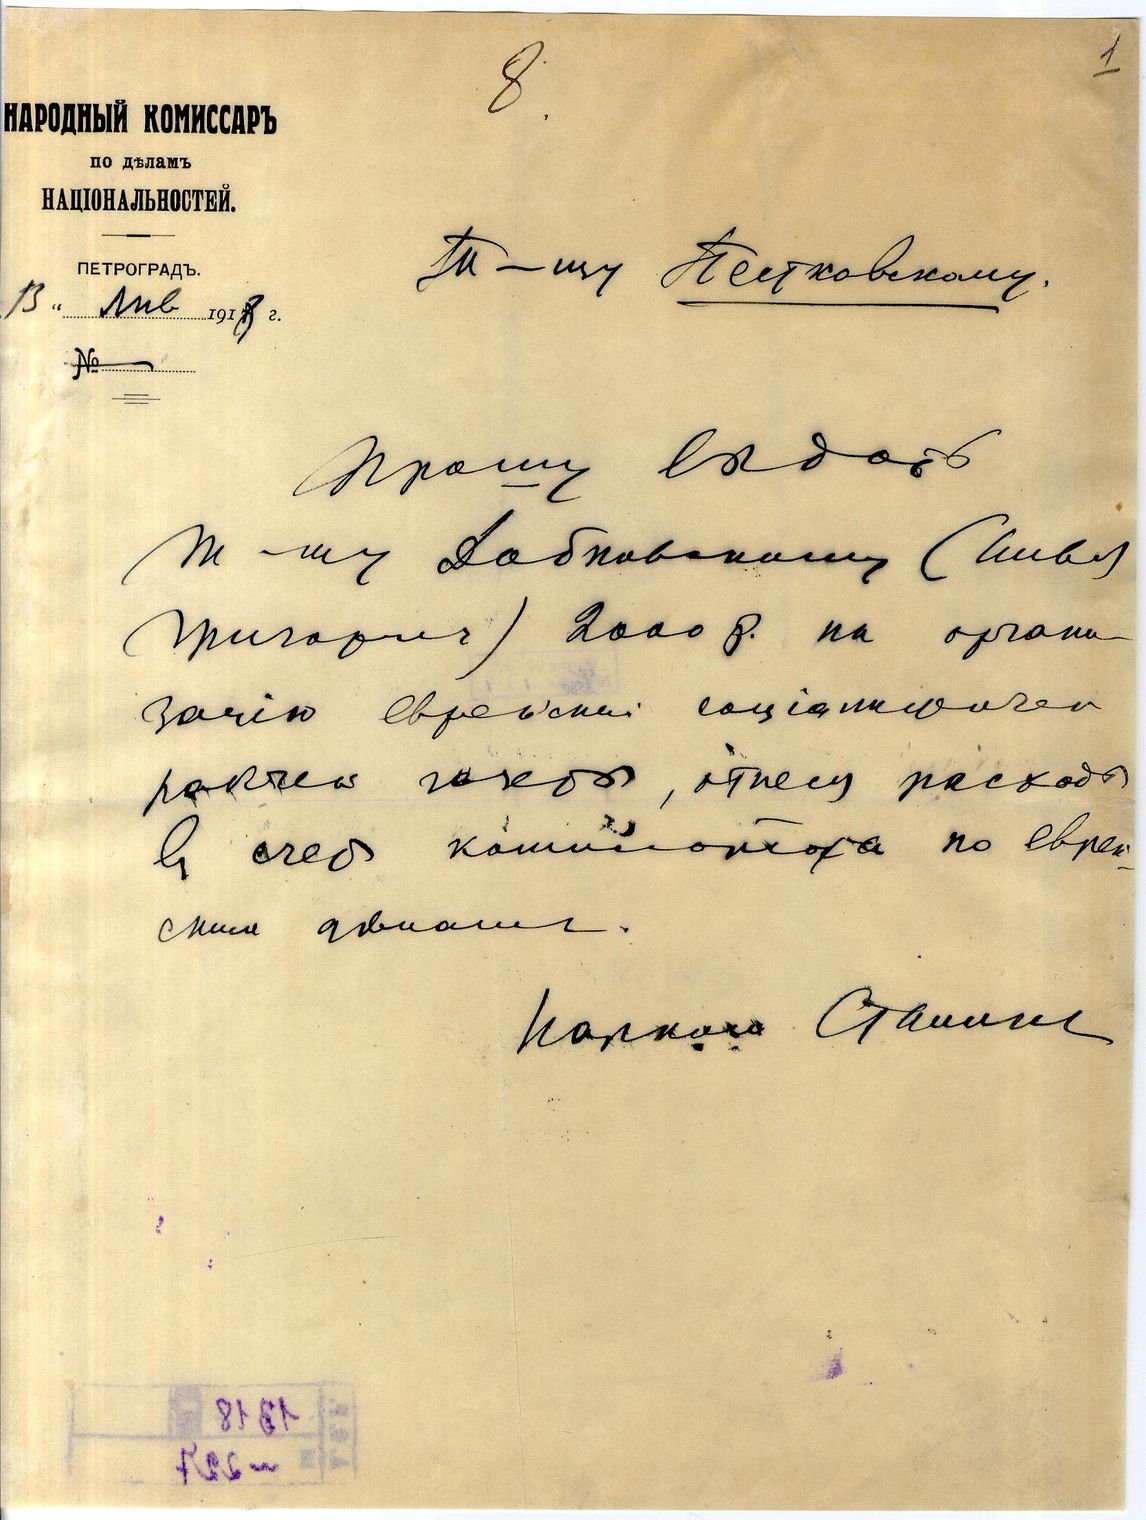 8.
1
НАРОДНЫЙ КОМИССАРЪ
ПО ДѢЛАМЪ
НАЦІОНАЛЬНОСТЕЙ.
ПЕТРОГРАДЪ.
13 " Янв 1918 г.
№
Т-щу Пестковскому.
Прошу выдать
т-щу Добковскому
Григорич) 2000 р. на органи
зацію еврейской
газеты, отнеся расходы
в счет комиссариата по еврей-
ским делам.
Нарком Сталин
1918
-227